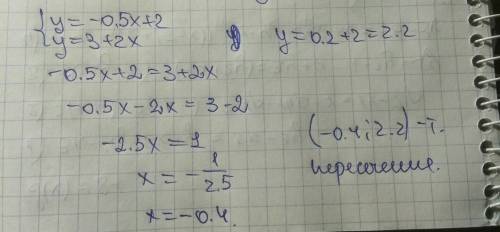 { y = -0.5x+2
y = 3+2x
-0.5x+2 = 3+2x
-0.5x-2x = 3-2
-2.5x = 1
x = - 1/2.5
x = -0.4
y = 0.2+2 = 2.2
(-0.4; 2.2) - т.
пересечения.